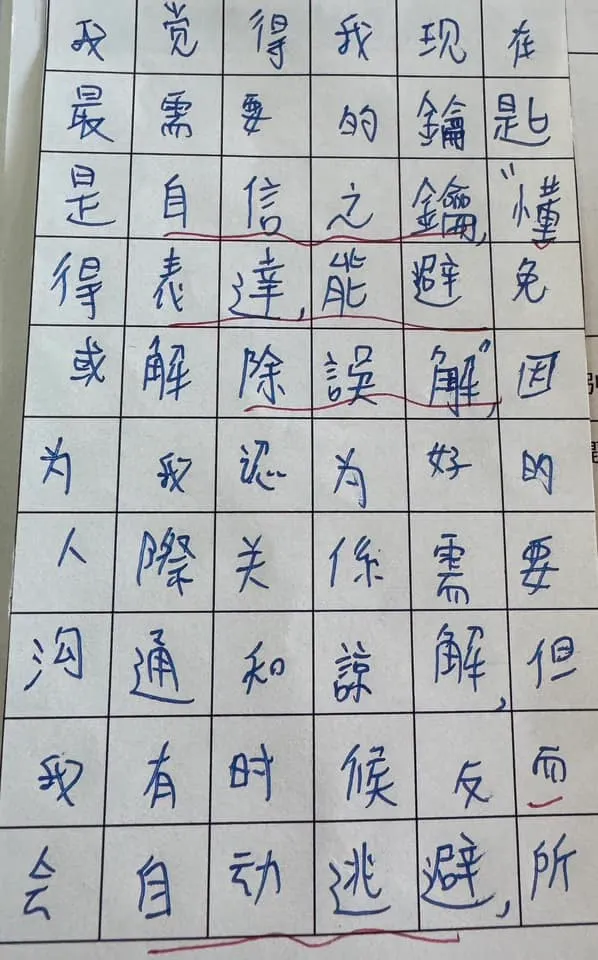 我觉得我现在
最需要的鑰匙
是自信之鑰,“懂
得表達,能避免
或解除誤解”,因
为我认为好的
人際关係需要
沟通和諒解,但
我有时候反而
会自动逃避,所